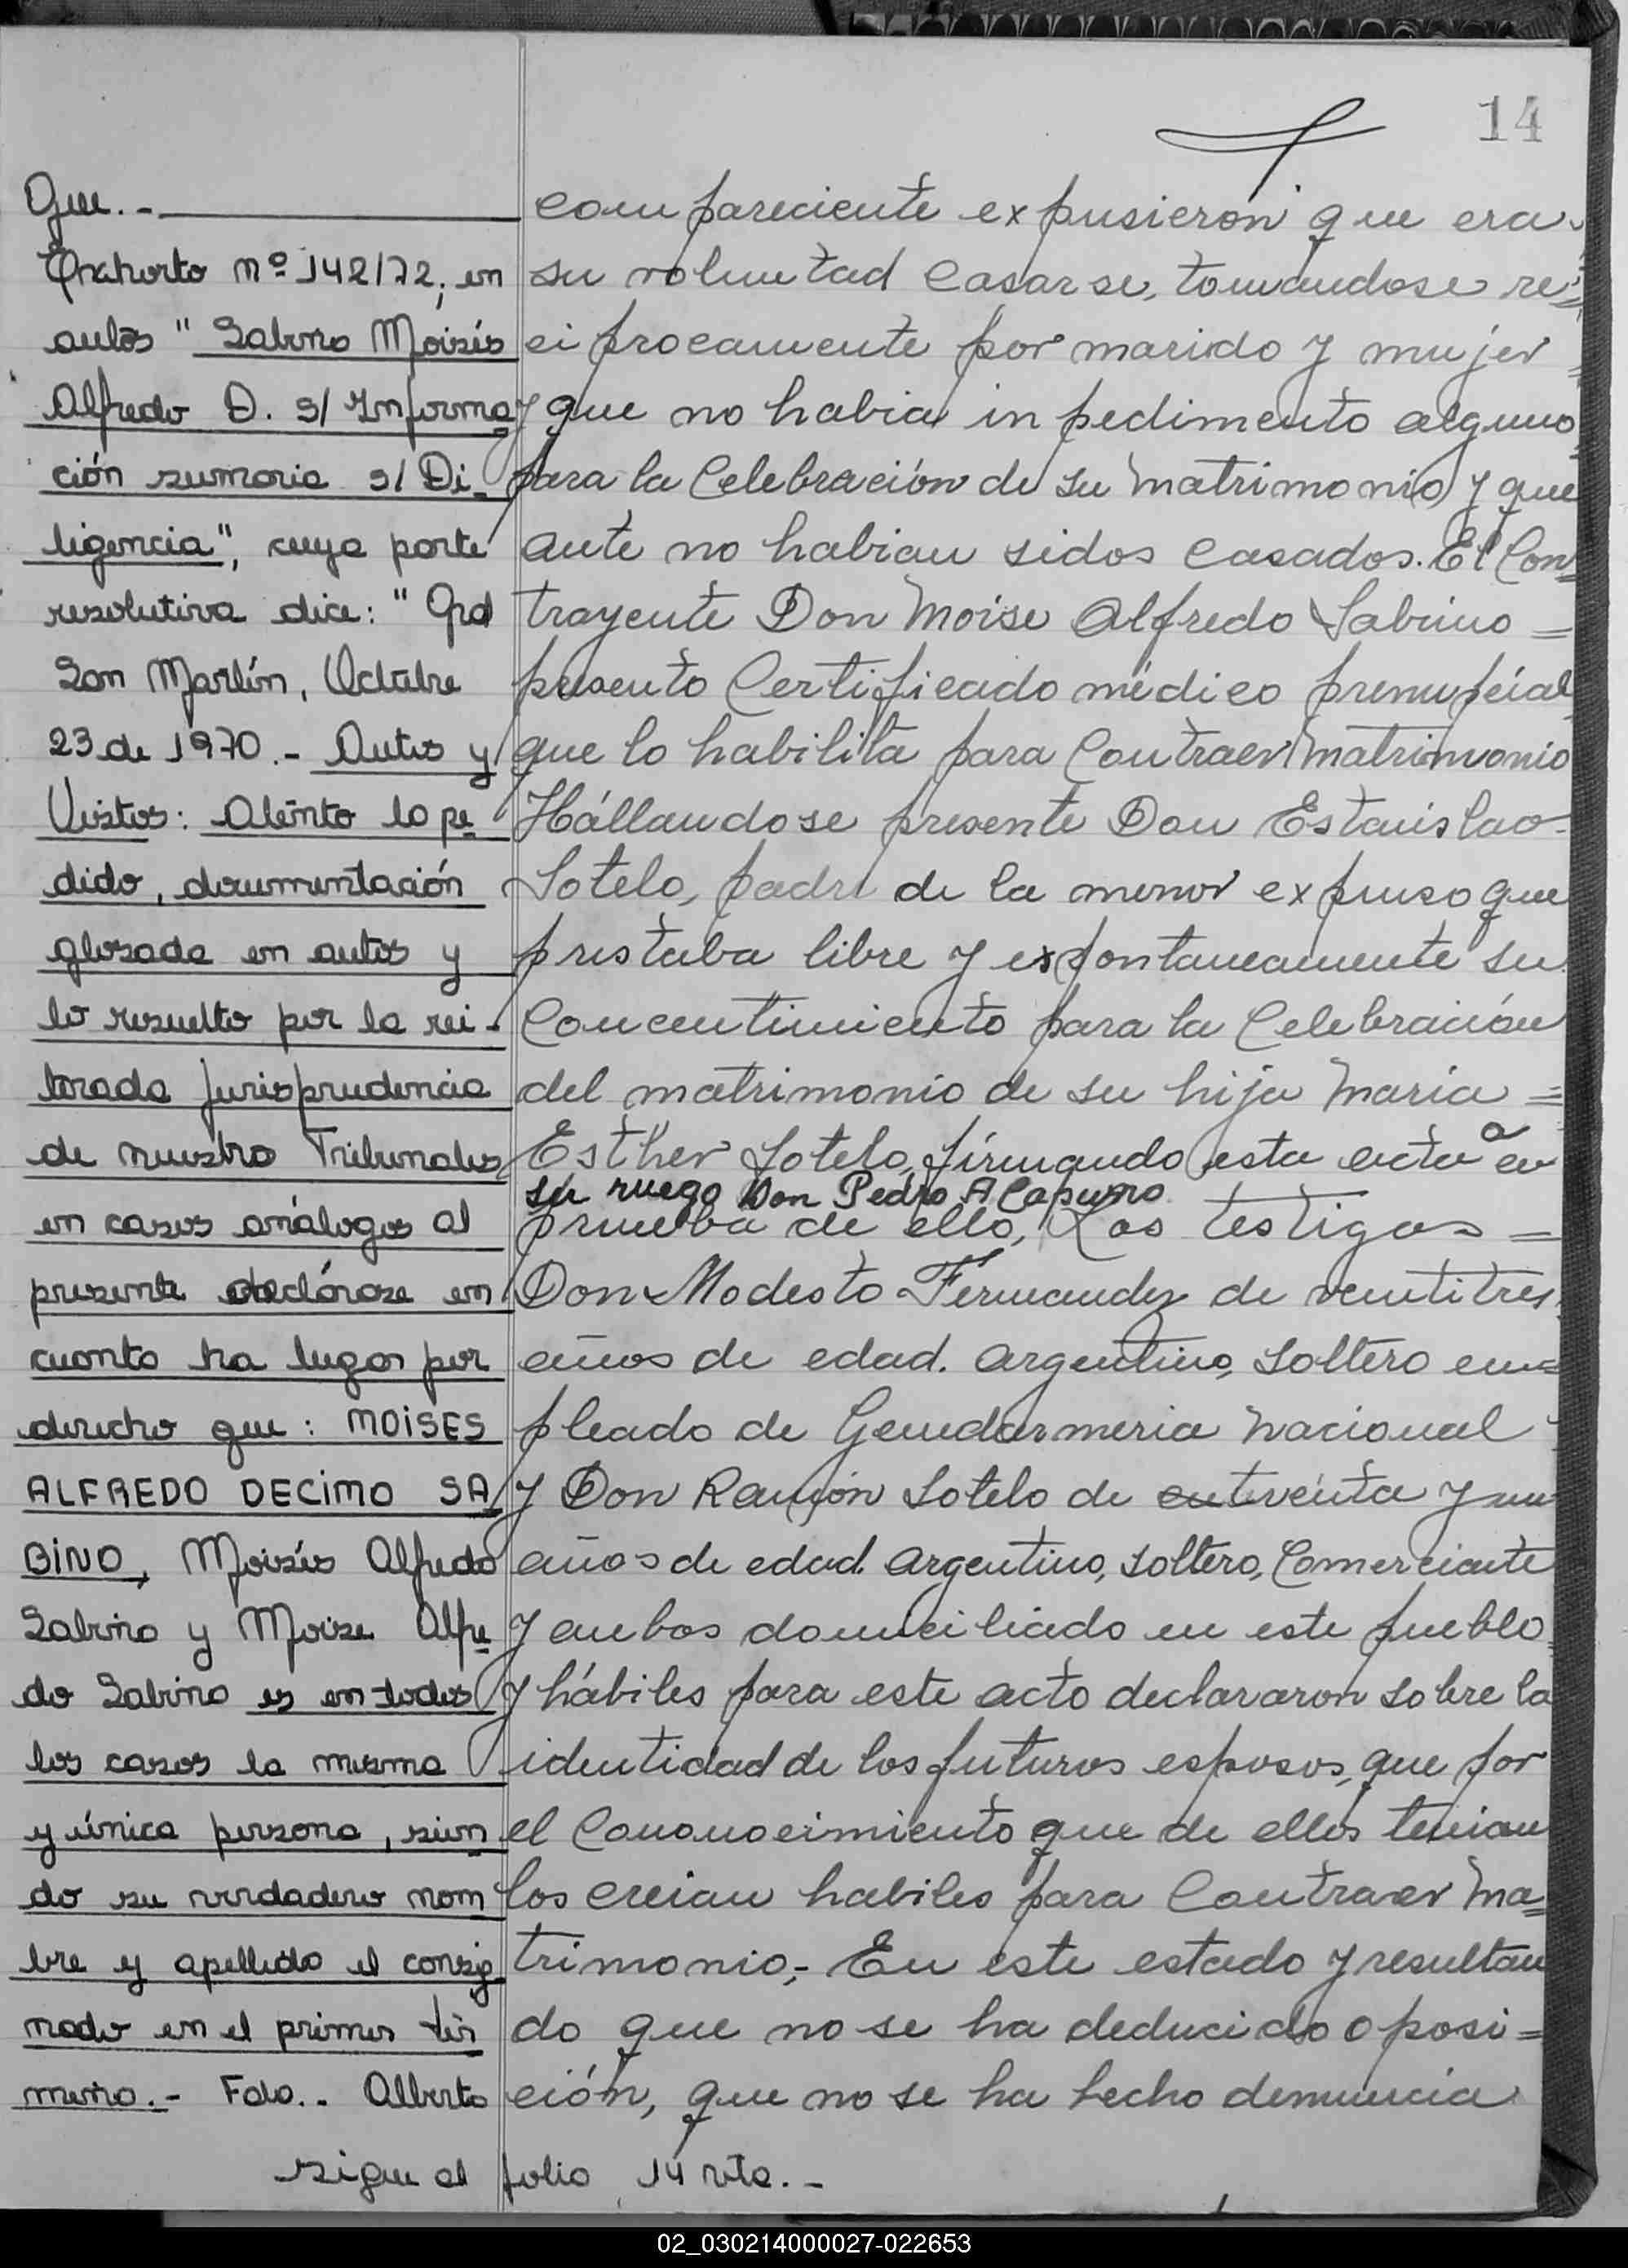 14
Que.-
Exhorto nº 142/72; en
autos "Sabino Moisés
Alfredo D. s/ Informa
ción sumaria s/ Di-
ligencia", cuya parte
resolutiva dice: "Gral
San Martín, Octubre
23 de 1970.- Autos y
Vistos: Atento lo pe-
dido, documentación
glosada en autos y
lo resuelto por la rei-
terada Jurisprudencia
de nuestro Tribunales
en casos análogos al
presente declárase en
cuanto ha lugar por
derecho que: MOISES
ALFREDO DECIMO SA
BINO, Moisés Alfredo
Sabino y Moise Alfre
do Sabino es en todos
los casos la misma
y única persona, sien
do su verdadero nom
bre y apellido el consig
nado en el primer tér
mino.- Fdo.. Alberto
compareciente expusieron que era
su voluntad Casarse, tomandose re=
ciprocamente por marido y mujer
y que no habia inpedimento alguno
para la Celebración de su matrimonio y que
ante no habian sidos Casados. El Con=
trayente Don Moise Alfredo Sabino =
presento Certificado médico prenupcial
que lo habilita para Contraer matrimonio
Hállandose presente Don Estanislao
Sotelo, padre de la menor expuso que
prestaba libre y expontaneamente su
Concentimiento para la Celebración
del matrimonio de su hija Maria =
Esther Sotelo, firmando esta acta a en
su ruego Don Pedro A Capurro
prueba de ello, Los testigos =
Don Modesto Fernandez de ventitres
años de edad. argentino, soltero em=
pleado de Gendarmeria Nacional
y Don Ramón Sotelo de treinta y un
años de edad. argentino, soltero, Comerciante
y ambos domiciliado en este pueblo
y hábiles para este acto declararon sobre la
identidad de los futuros esposos, que por
el Cononocimiento que de ellos tenian
los creian habiles para Contraer Ma=
trimonio;- En este estado y resultan
do que no se ha deducido oposi=
ción, que no se ha hecho denuncia
sigue al folio 14 vta.-
02_030214000027-022653